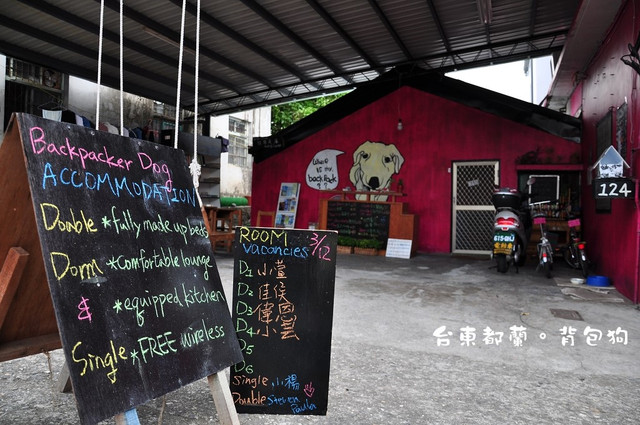 Backpacker Dog
ACCOMMODATION
Double *fully made up beds
Dorm *comfortable lounge
& *equipped kitchen
Single *FREE wireless
ROOM 3/12
vacancies
D1 小萱
D2 佳侯
D3 偉恩
D4 小雲
D5
D6
Single 小楊
Double Steven
Paula
Where is my backpack ??
124
台東都蘭。背包狗